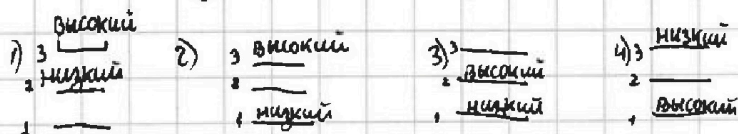 1) 3 высокий
2 низкий
1
2) 3 высокий
2
1 низкий
3) 3
2 высокий
1 низкий
4) 3 низкий
2
1 высокий